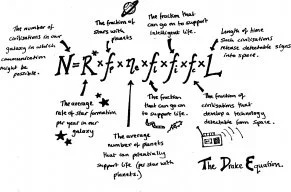 The number of
civilisations in our
galaxy in which
communication
might be
possible.
The fraction of
stars with
planets
The fraction that can
go on to support
intelligent life.
Length of time
such civilisations
release detectable signs
into space.
N=R*×fp×ne×fl×fi×fc×L
The average
rate of star formation
per year in our
galaxy
The average
number of planets
that can potentially
support life (per star with
planets.)
The fraction
that can go on
to support life.
The fraction of
civilisations that
develop a technology
detectable from space.
The Drake Equation.